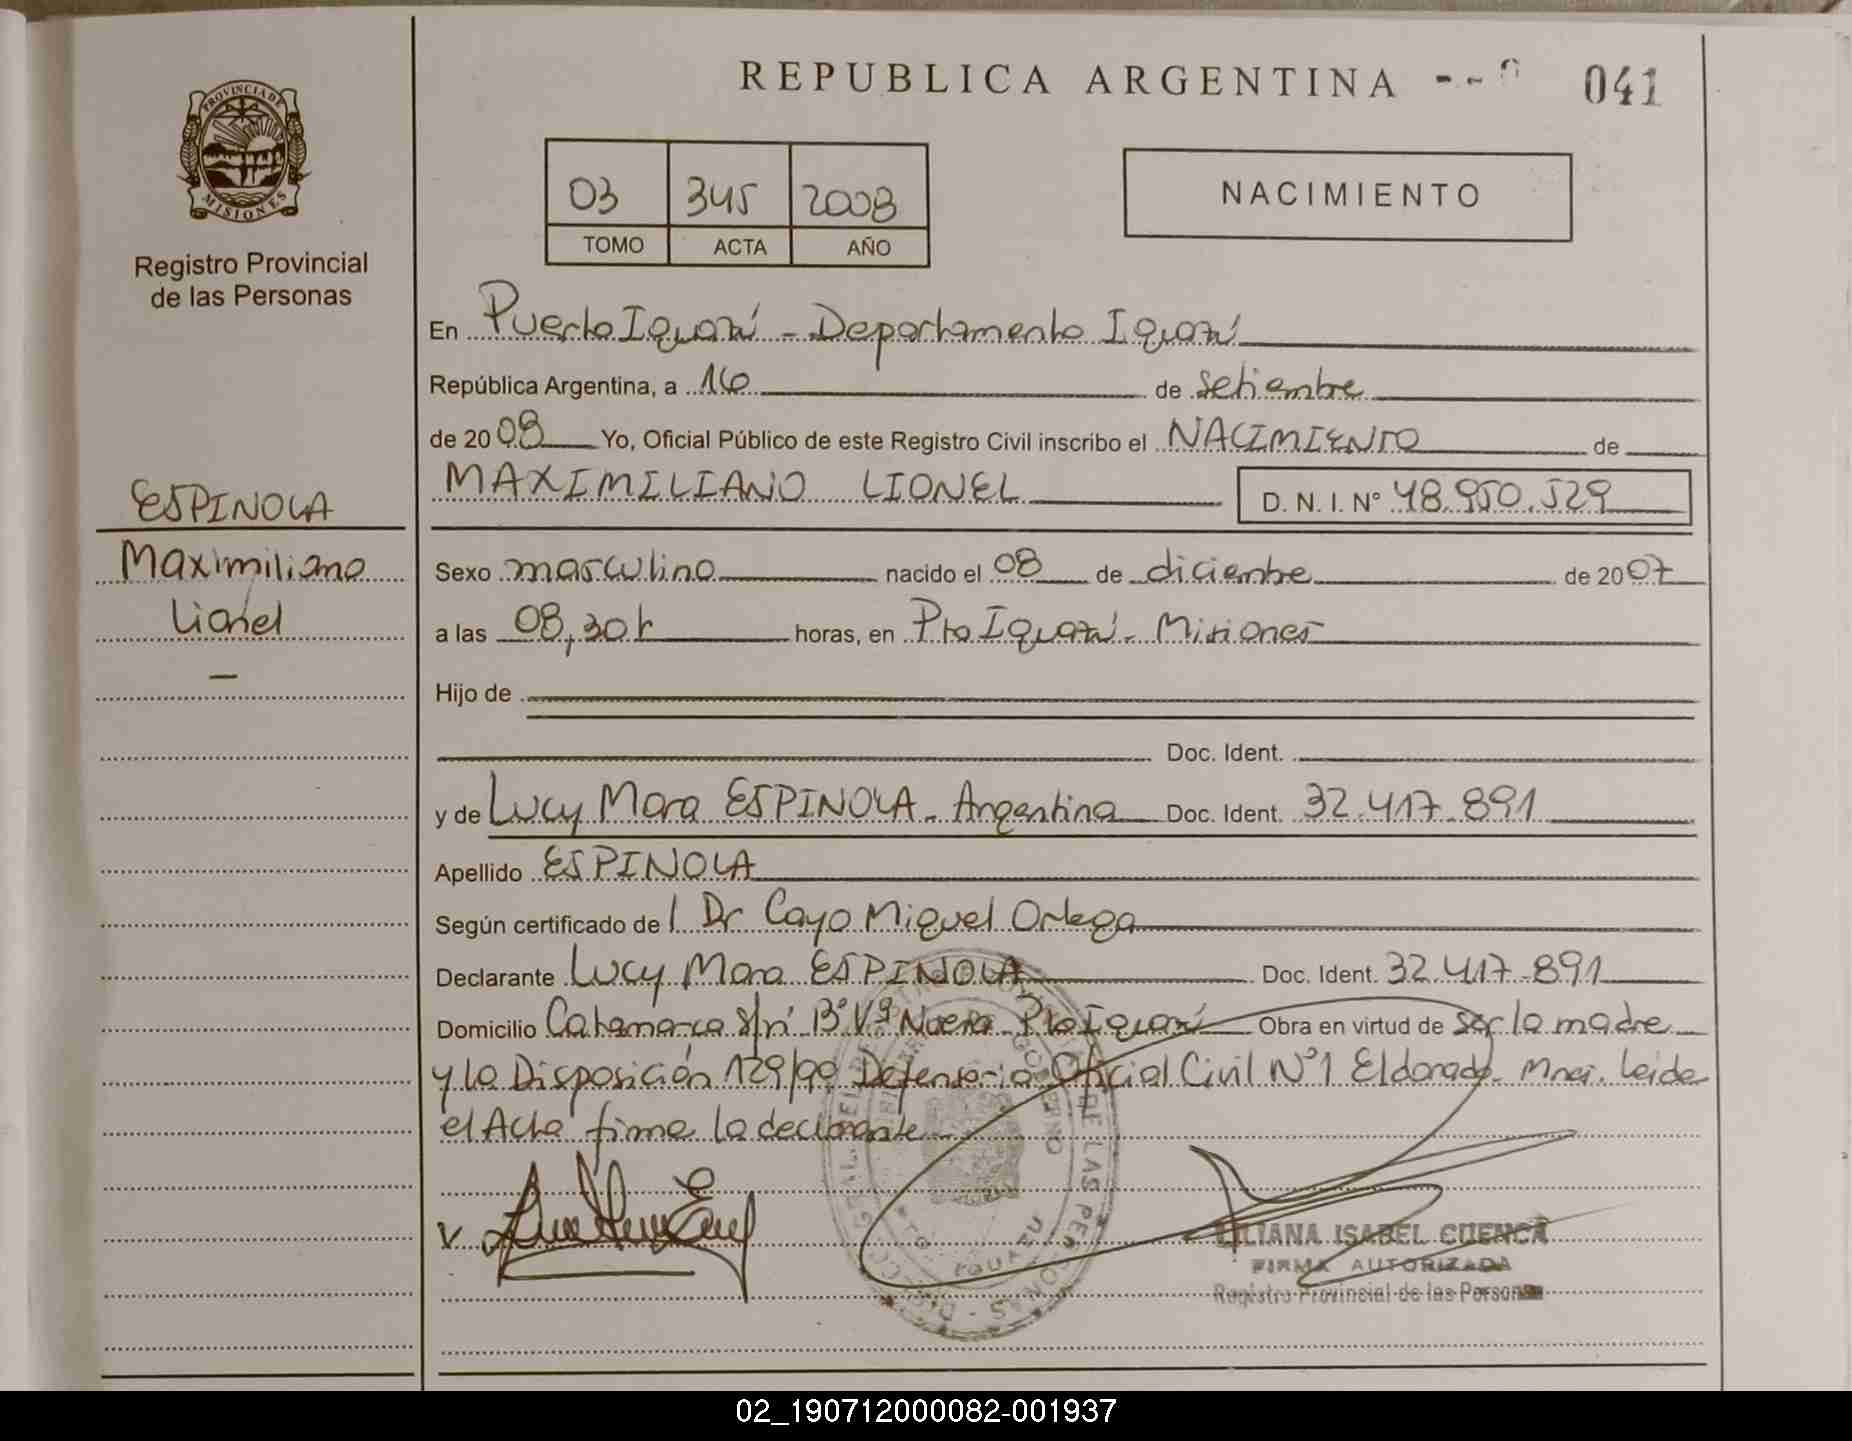 REPUBLICA ARGENTINA
041
PROVINCIA DE
MISIONES
Registro Provincial
de las Personas
03 345 2008
TOMO ACTA AÑO
NACIMIENTO
En Puerto Iguazú - Departamento Iguazú
República Argentina, a 16 de Setiembre
de 2008 Yo, Oficial Público de este Registro Civil inscribo el NACIMIENTO de
MAXIMILIANO LIONEL D. N. I. N° 48.950.529
ESPINOLA
Maximiliano
Lionel
Sexo masculino nacido el 08 de diciembre de 2007
a las 08,30 h horas, en Pto Iguazú - Misiones
Hijo de
Doc. Ident.
y de Lucy Mara ESPINOLA - Argentina Doc. Ident. 32.417.891
Apellido ESPINOLA
Según certificado de l Dr Cayo Miguel Ortega
Declarante Lucy Mara ESPINOLA Doc. Ident. 32.417.891
Domicilio Catamarca s/n° B° Va Nueva Pto Iguazú Obra en virtud de ser la madre
y la Disposición 129/99 Defensoría Oficial Civil N°1 Eldorado. Mnes. Leida
el Acta firma la declarante
LILIANA ISABEL CUENCA
FIRMA AUTORIZADA
Registro Provincial de las Personas
02_190712000082-001937